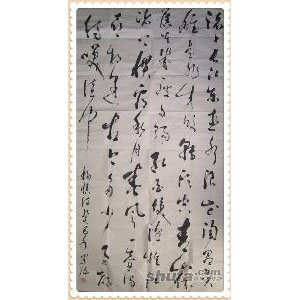 滚滚长江东逝水浪花淘尽英
雄是非成败转头空青山依
旧在几度夕阳红白发渔樵江
渚上惯看秋月春风一壶浊
酒喜相逢古今多少事都
付笑谈中
杨慎词